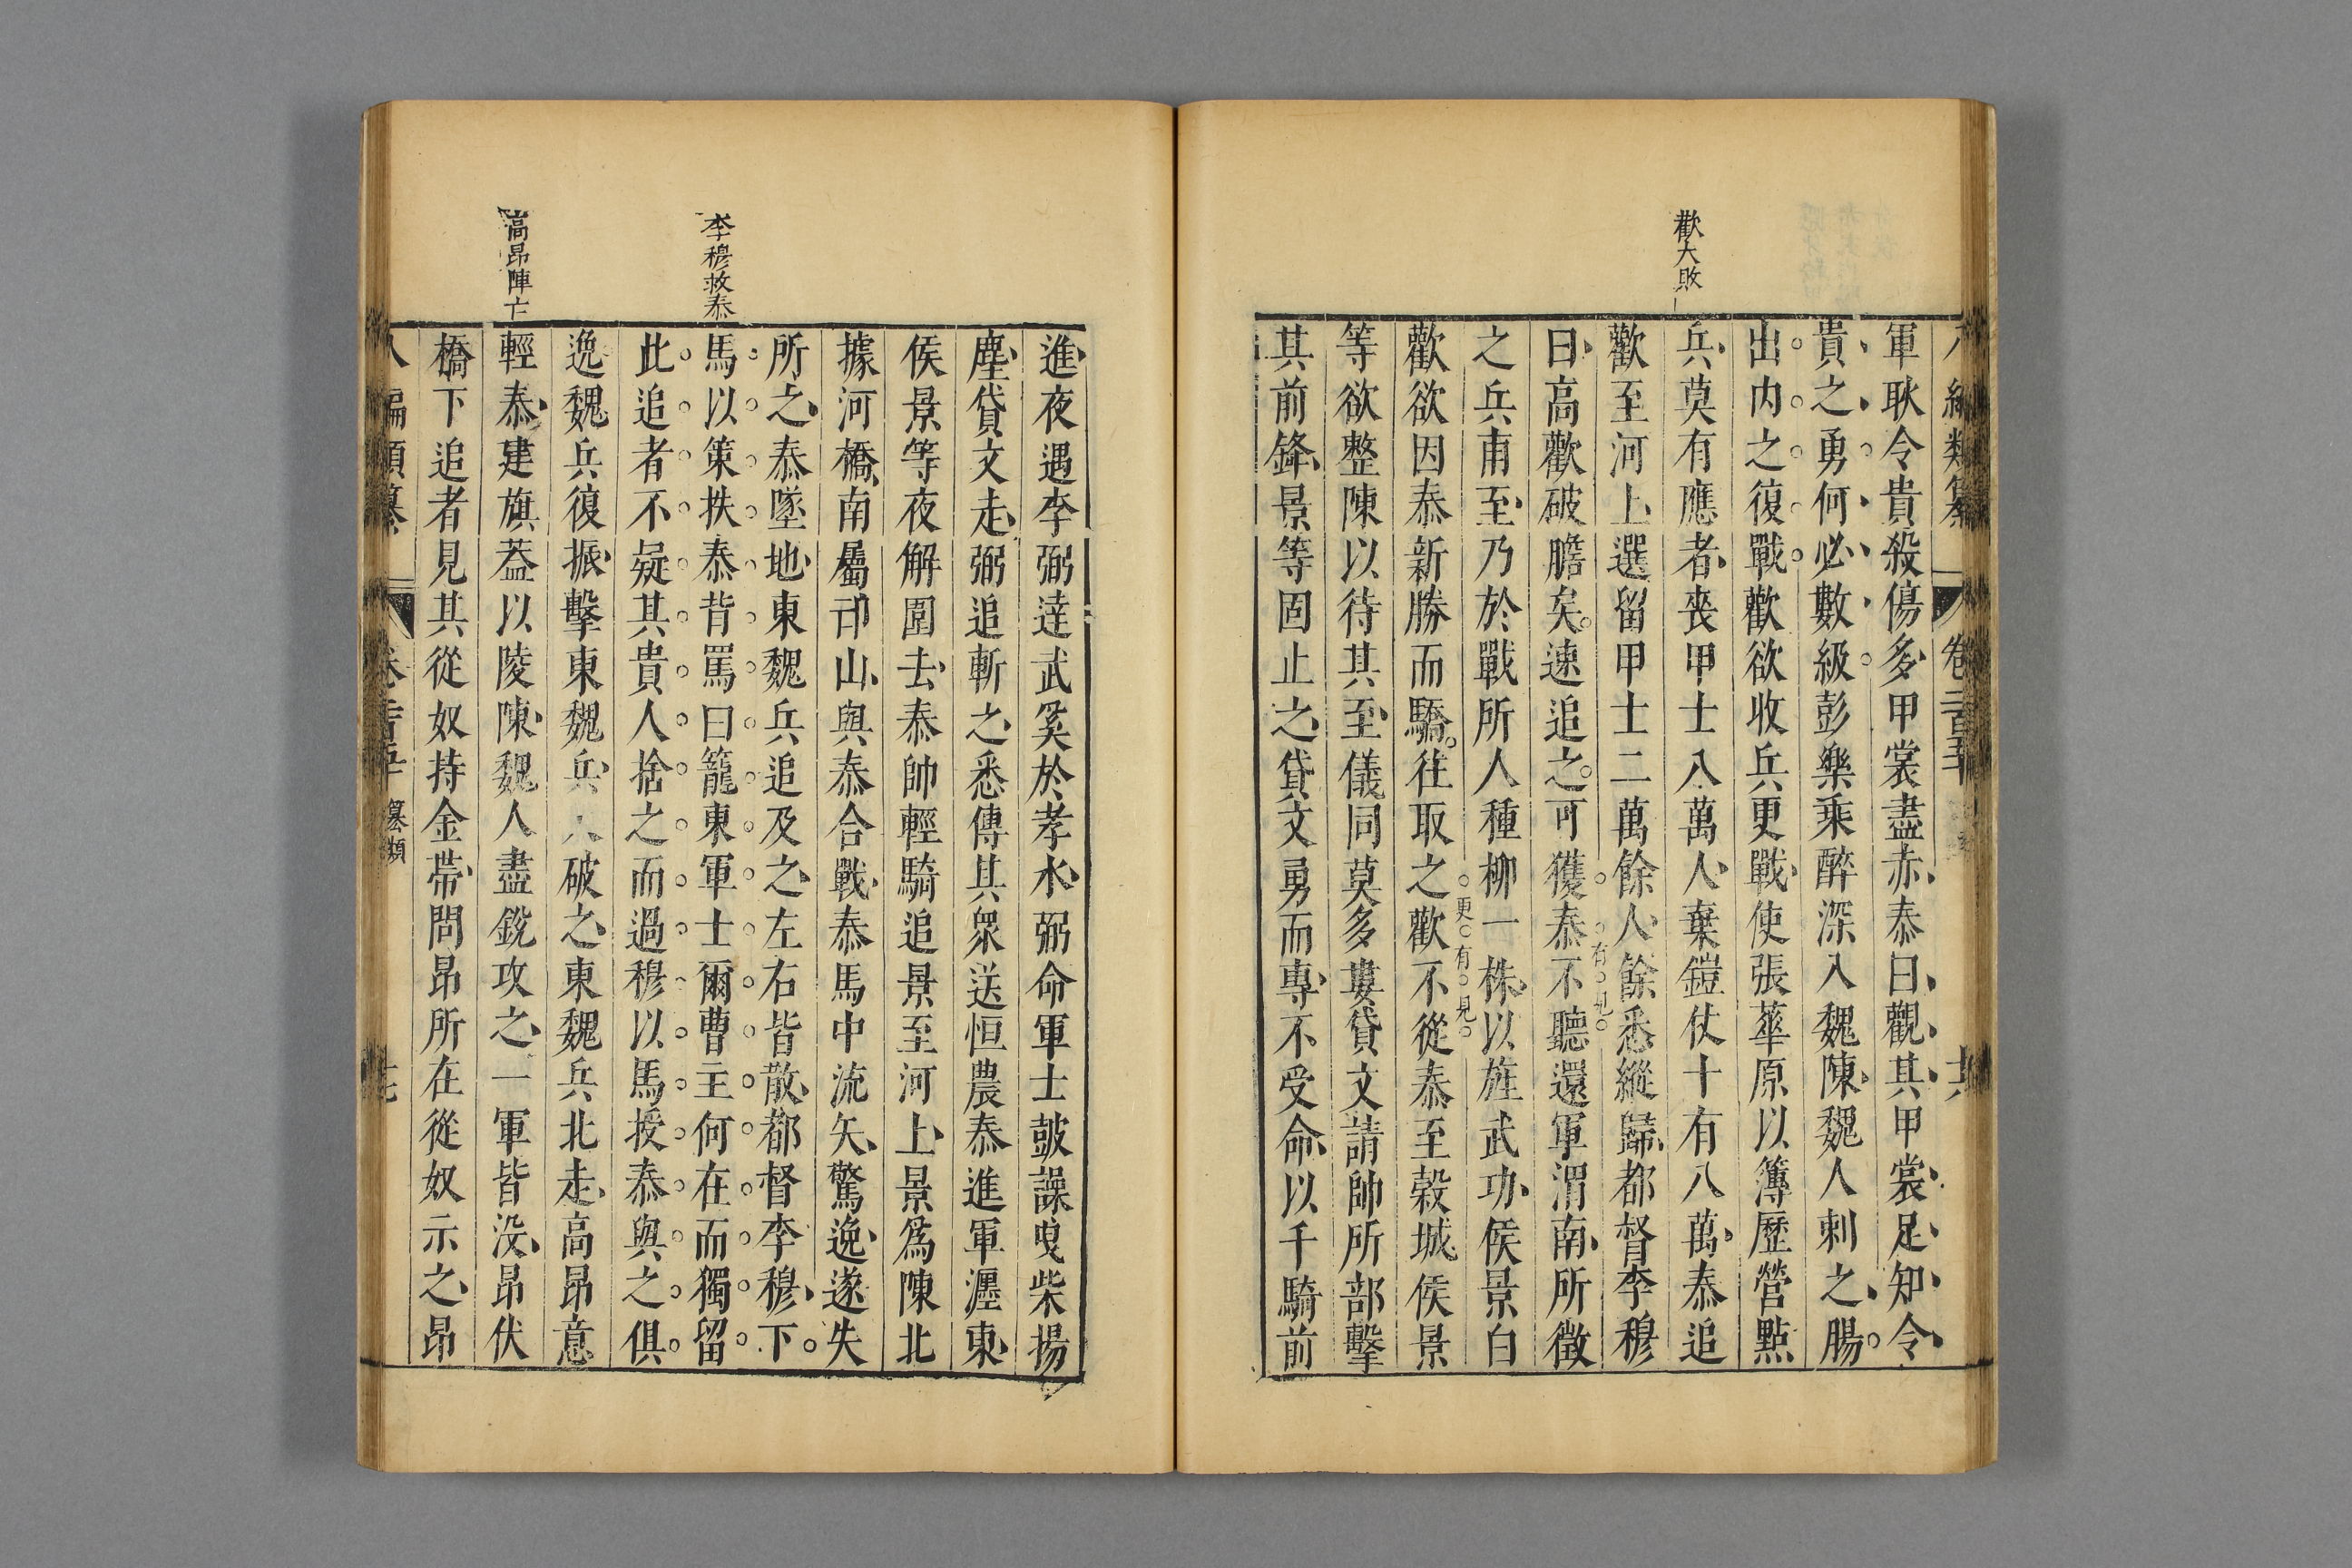 歡大敗
軍耿令貴殺傷多甲裳盡赤泰曰觀其甲裳足知令
貴之勇何必數級彭樂乘醉深入魏陳魏人刺之腸
出内之復戰歡欲收兵更戰使張華原以簿歷營點
兵莫有應者喪甲士八萬人棄鎧仗十有八萬泰追
歡至河上選留甲士二萬餘人餘悉縱歸都督李穆
有見
曰高歡破膽矣速追之可獲泰不聽還軍渭南所徵
之兵甫至乃於戰所人種柳一株以旌武功侯景白
更有見
歡欲因泰新勝而驕往取之歡不從泰至穀城侯景
等欲整陳以待其至儀同莫多婁貸文請帥所部擊
其前鋒景等固止之貸文勇而專不受命以千騎前
李穆救泰
高昂陣亡
進夜遇李弼達武奚於孝水弼命軍士鼓譟曳柴揚
塵貸文走弼追斬之悉傳其衆送恒農泰進軍瀍東
侯景等夜解圍去泰帥輕騎追景至河上景爲陳北
據河橋南屬邙山與泰合戰泰馬中流矢驚逸遂失
所之泰墜地東魏兵追及之左右皆散都督李穆下
馬以策抶泰背罵曰籠東軍士爾曹主何在而獨留
此追者不疑其貴人捨之而過穆以馬授泰與之俱
逸魏兵復振擊東魏兵破之東魏兵北走高昂意
輕泰建旗葢以陵陳魏人盡銳攻之一軍皆没昂伏
橋下追者見其從奴持金帶問昂所在從奴示之昂